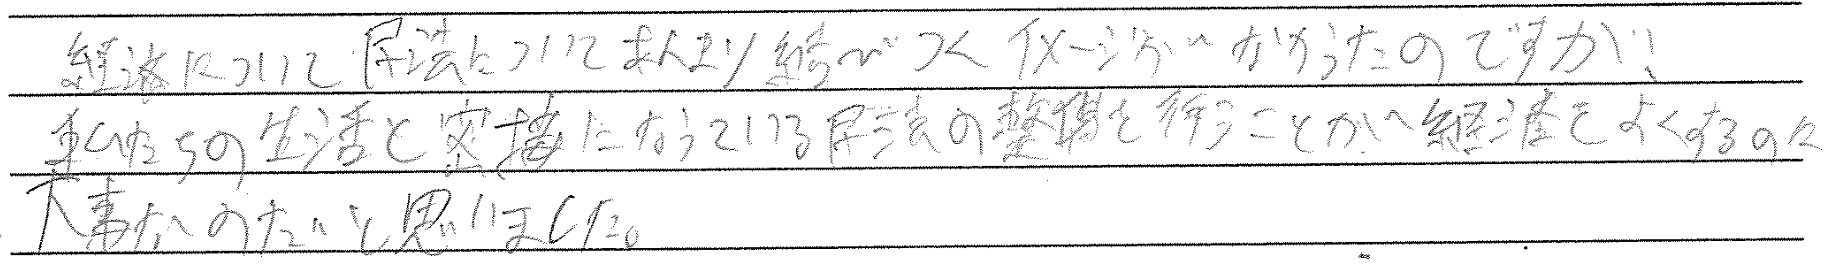 経済について民法についてあんまり結びつくイメージがなかったのですが、
私たちの生活と密接になっている民法の整備を行うことが経済をよくするのに
大事なのだと思いました。